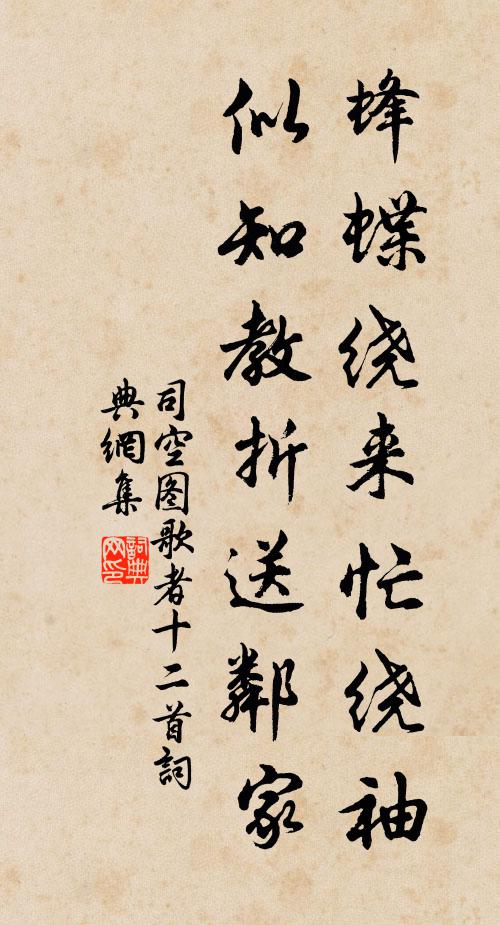 蜂蝶绕来忙绕袖
似知教折送鄰家
司空图歌者十二首詞
典網集
詞典
网印